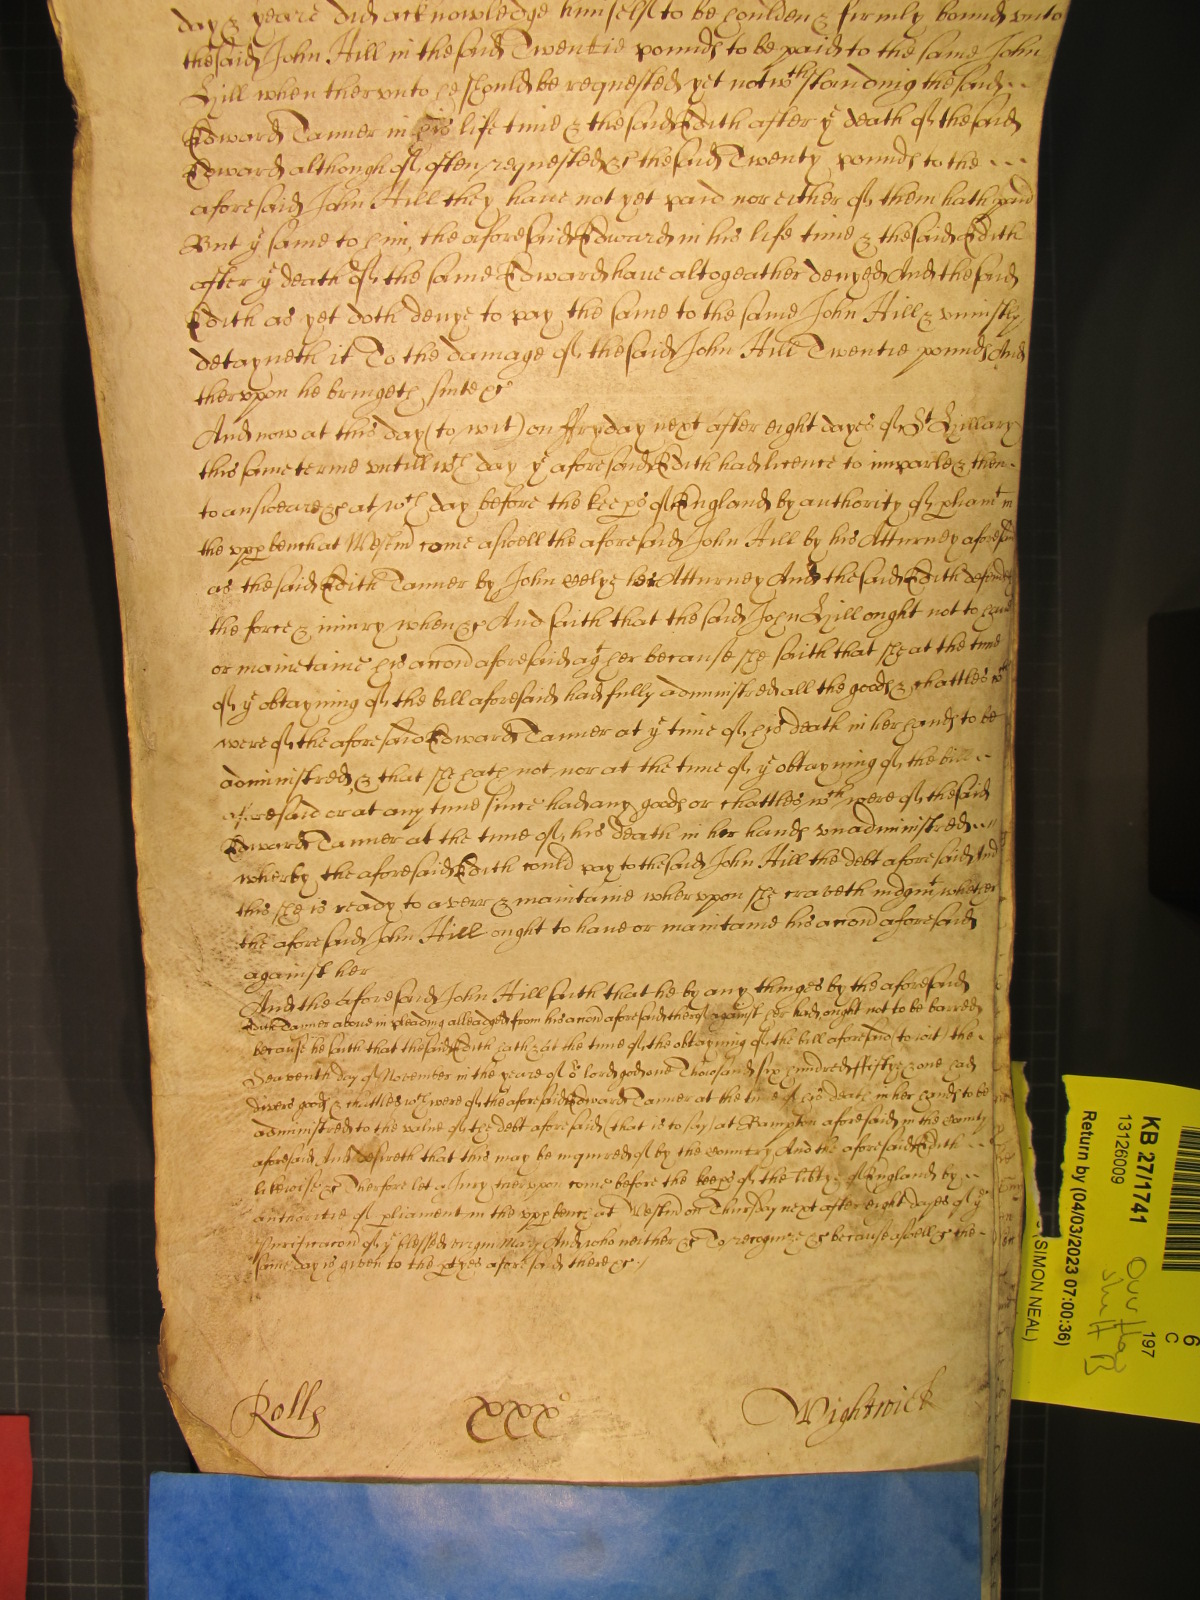 day & yeare did acknowledge himself to be houlden & firmly bound vnto
the said John Hill in the said Twentie pounds to be paid to the same John
Hill when thervnto he should be requested yet notwth standing the said --
Edward Tanner in his life time & the said Edith after ye death of the said
Edward although oft often requested &c the said Twenty pounds to the ---
aforesaid John Hill they haue not yet paid nor either of them hath paid
But ye same to him, the aforesaid Edward in his life time & the said Edith
after ye death of the same Edward haue altogeather denyed And the said
Edith as yet doth denye to pay the same to the same John Hill & vniustly
detayneth it To the damage of the said John Hill Twentie pounds And
thervpon he bringeth suite &c
And now at this day (to wit) on ffryday next after eight dayes of St Hillary
this same terme vntill wch day ye aforesaid Edith had licence to imparle & then-
to answeare &c at wch day before the keeps of England by authority of pliamt in
the vpp bench at Westm come aswell the aforesaid John Hill by his Atturney aforesaid
as the said Edith Tanner by John velye her Atturney And the said Edith defendeth
the force & iniury when &c And saith that the said John Hill ought not to haue
or maintaine his accon aforesaid agt her because she saith that she at the time
of ye obtayning of the bill aforesaid had fully administred all the goods & chattles wch
were of the aforesaid Edward Tanner at ye time of his death in her hands to be
administred & that she hath not nor at the time of ye obtayning of the bill --
aforesaid or at any time since had any goods or chattles wch were of the said
Edward Tanner at the time of his death in her hands vnadministred --
wherby the aforesaid Edith could pay to the said John Hill the debt aforesaid And
this she is ready to averr & maintaine whervpon she craveth iudgmt whether
the aforesaid John Hill ought to haue or maintaine his accon aforesaid
against her
And the aforesaid John Hill saith that he by any thinges by the aforesaid
Edith Tanner aboue in pleading alleadged from his accon aforesaid therof against her had ought not to be barred
because he saith that the said Edith hath & at the time of the obtayning of the bill aforesaid to wit the -
Seaventh day of November in the yeare of or lord god one Thowsand six hundred ffiftye & one had
divers goods & chattles wch were of the aforesaid Edward Tanner at the time of his death in her hands to be
administred to the value of the debt aforesaid (that is to say) at Bampton aforesaid in the county
aforesaid And desireth that this may be inquired of by the country And the aforesaid Edith --
likewise &c Therfore let a Iury thervpon come before the keeps of the libtye of England by --
authoritie of pliament in the vpp bench at Westm on Thursday next after eight dayes of ye
Purificacon of ye blessed virgin Mary And who neither &c To recognize &c because aswell &c the -
same day is given to the ptyes aforesaid there &c /
Rolls xxxo Wightwick
KB 27/1741
13126009
Return by (04/03/2023 07:00:36)
(SIMON NEAL)
6
C
197